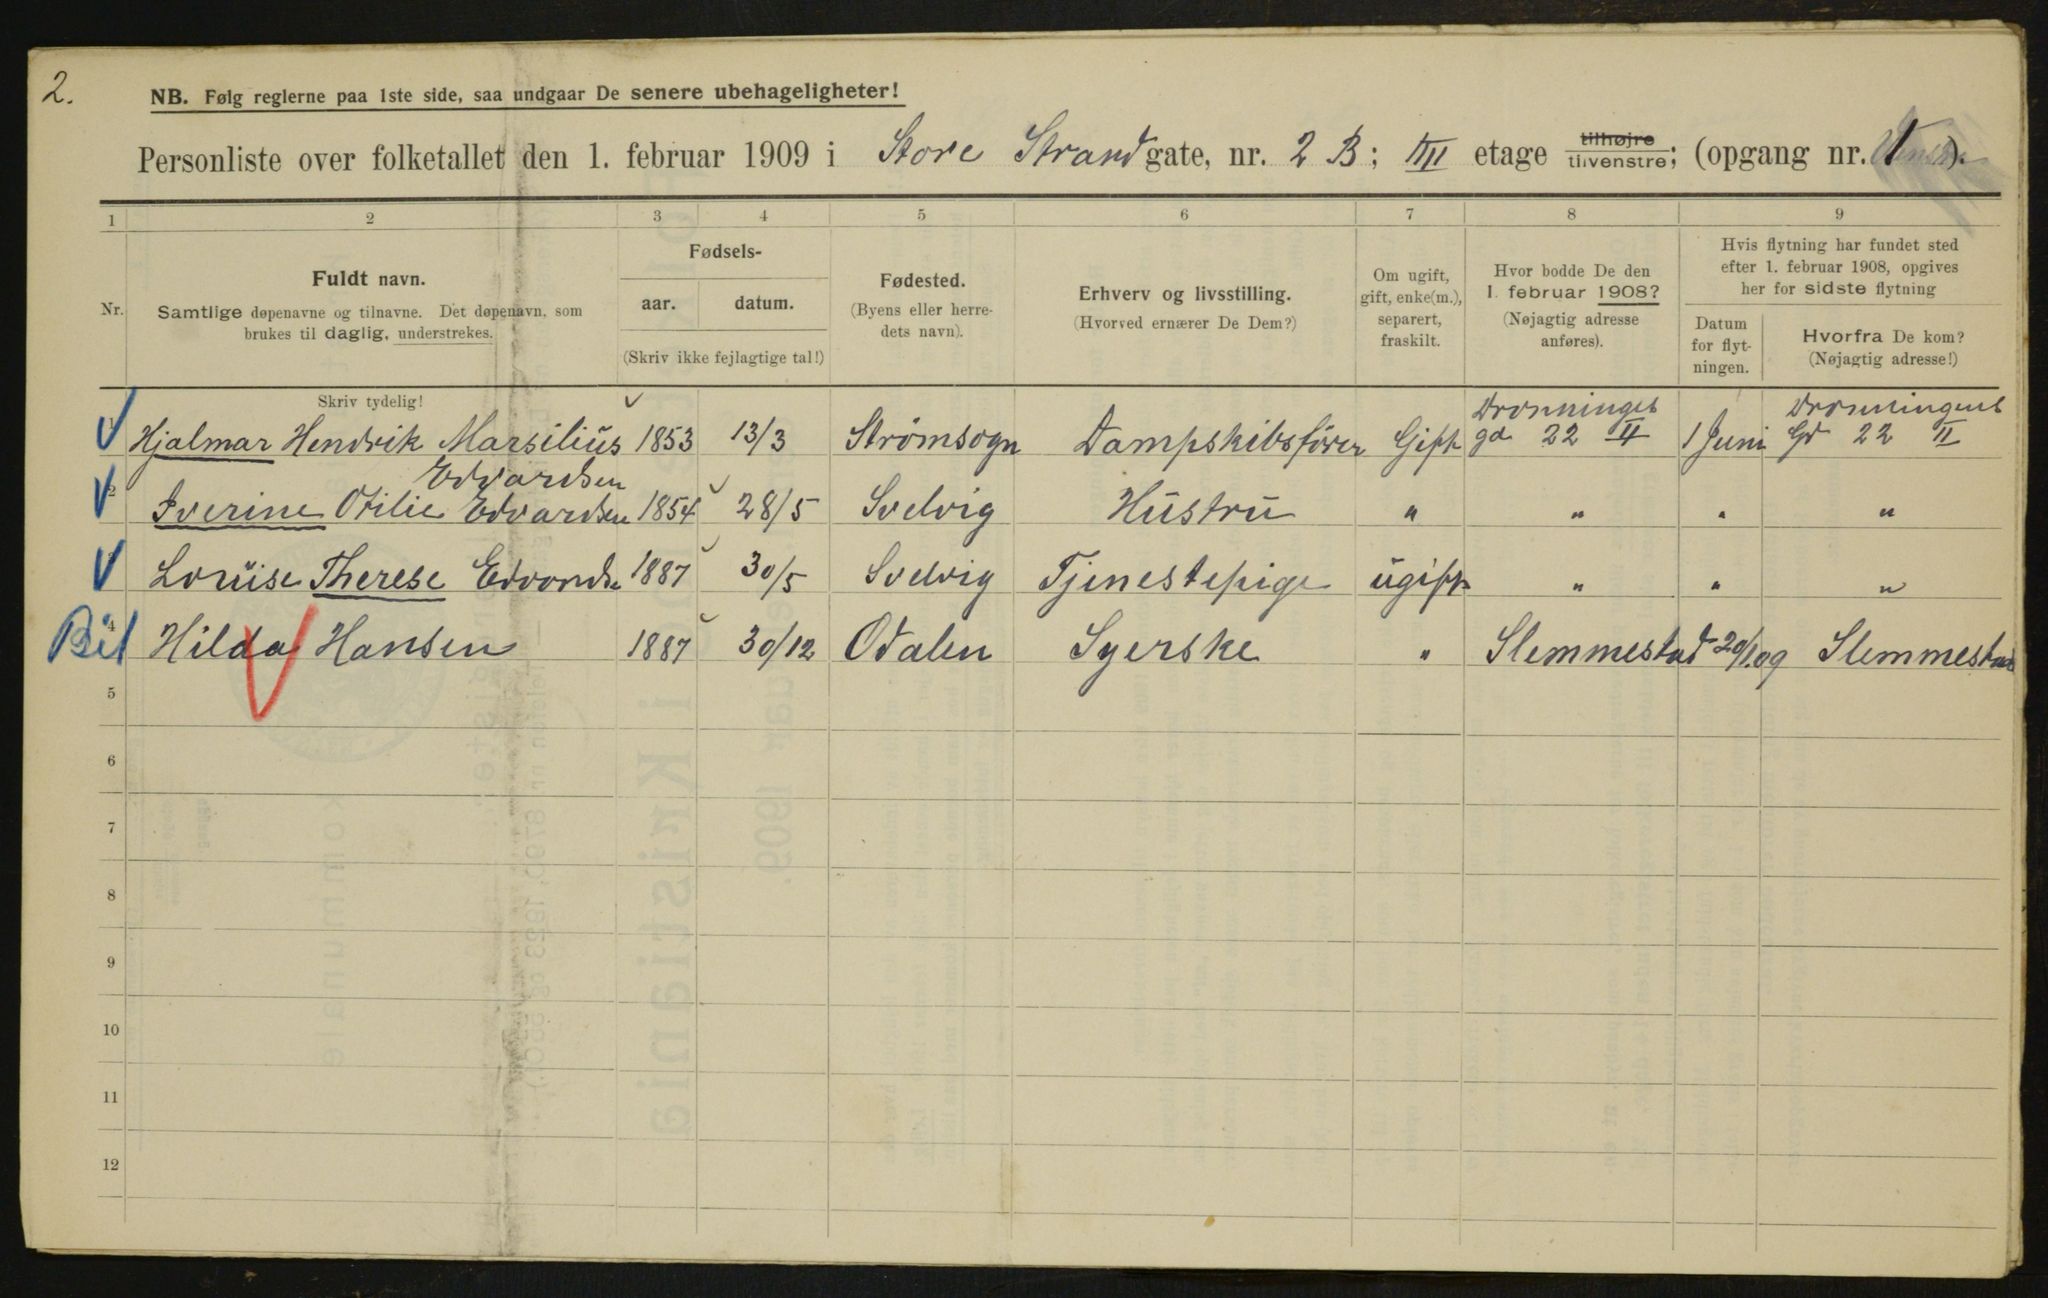 2.
NB. Følg reglerne paa 1ste side, saa undgaar De senere ubehageligheter!
Personliste over folketallet den 1. februar 1909 i Store Strandgate, nr. 2 B; III etage tilhøjre tilvenstre; (opgang nr. 1).
1 2 3 4 5 6 7 8 9
Nr.
Fuldt navn.
Samtlige døpenavne og tilnavne. Det døpenavn, som
brukes til daglig, understrekes.
Fødsels-
aar. datum.
(Skriv ikke fejlagtige tal!)
Fødested.
(Byens eller herre-
dets navn).
Erhverv og livsstilling.
(Hvorved ernærer De Dem?)
Om ugift,
gift, enke(m.),
separert,
fraskilt.
Hvor bodde De den
1. februar 1908?
(Nøjagtig adresse
anføres).
Hvis flytning har fundet sted
efter 1. februar 1908, opgives
her for sidste flytning
Datum
for flyt-
ningen.
Hvorfra De kom?
(Nøjagtig adresse!)
Skriv tydelig!
Hjalmar Hendrik Marsilius Edvardsen 1853 13/3 Strømsogn Dampskibsfører Gift Dronninges gd 22 II 1 Juni Dronningens Gd 22 II
2 Iverine Otilie Edvardsen 1854 28/5 Svelvig Hustru " " " "
Louise Therese Edvardsen 1887 30/5 Svelvig Tjenestepige ugift " " "
Bet 4 Hilda Hansen 1887 30/12 Odalen Syerske " Slemmestad 20/1 09 Slemmestad
5
6
7
8
9
10
11
12